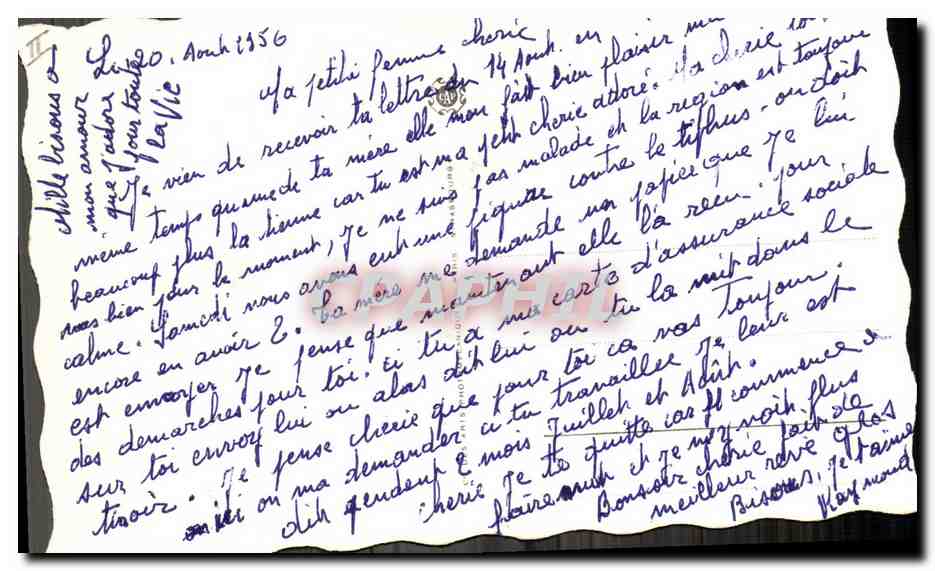 II
Le, 20. Août 1956
Ma petite femme cherie
Je vien de recevoir ta lettre du 14 Aout. en
même temps que de ta mère elle mon fait bien plaisir mai
beaucoup plus la tienne car tu est ma petit cherie adoré. Ma cherie
vas bien pour le moment, je ne suis pas malade et la region est toujour
calme. Samedi nous avons eut une piqure contre le tiphus. on doit
encore en avoir 2. Ta mère me demande un papier que je lui
est envoyer je pense que maintenant elle l'a recu. pour
des demarches pour toi. ci tu a ma carte d'assurance sociale
sur toi envoy lui ou alors dit lui ou tu la mit dans le
tiroir. Je pense cherie que pour toi ca vas toujour.
ici on ma demander ci tu travailler je leur est
dit pendent 2 mois Juillet et Août.
cherie je te quitte car il commence a
faire nuit et je n'y voit plus
Bonsoir cherie fait de
meilleur reve gros
Bisous, je t'aime
Raymond
Mille bisous a
mon amour
que j'adore
pour toute
la vie
CPAPHIL